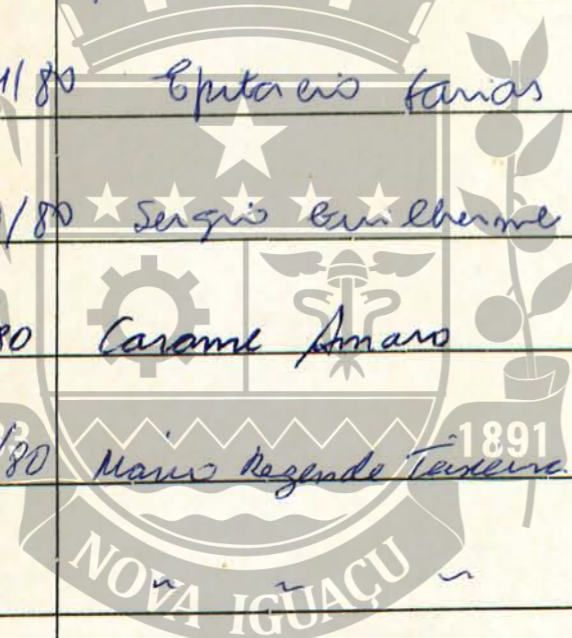 1/80 Epitacio Farias
/80 Sergio Guilherme
80 Carame Amaro
/80 Mario Rezende Teixeira
1891
3
~ ~ ~
NOVA IGUAÇU